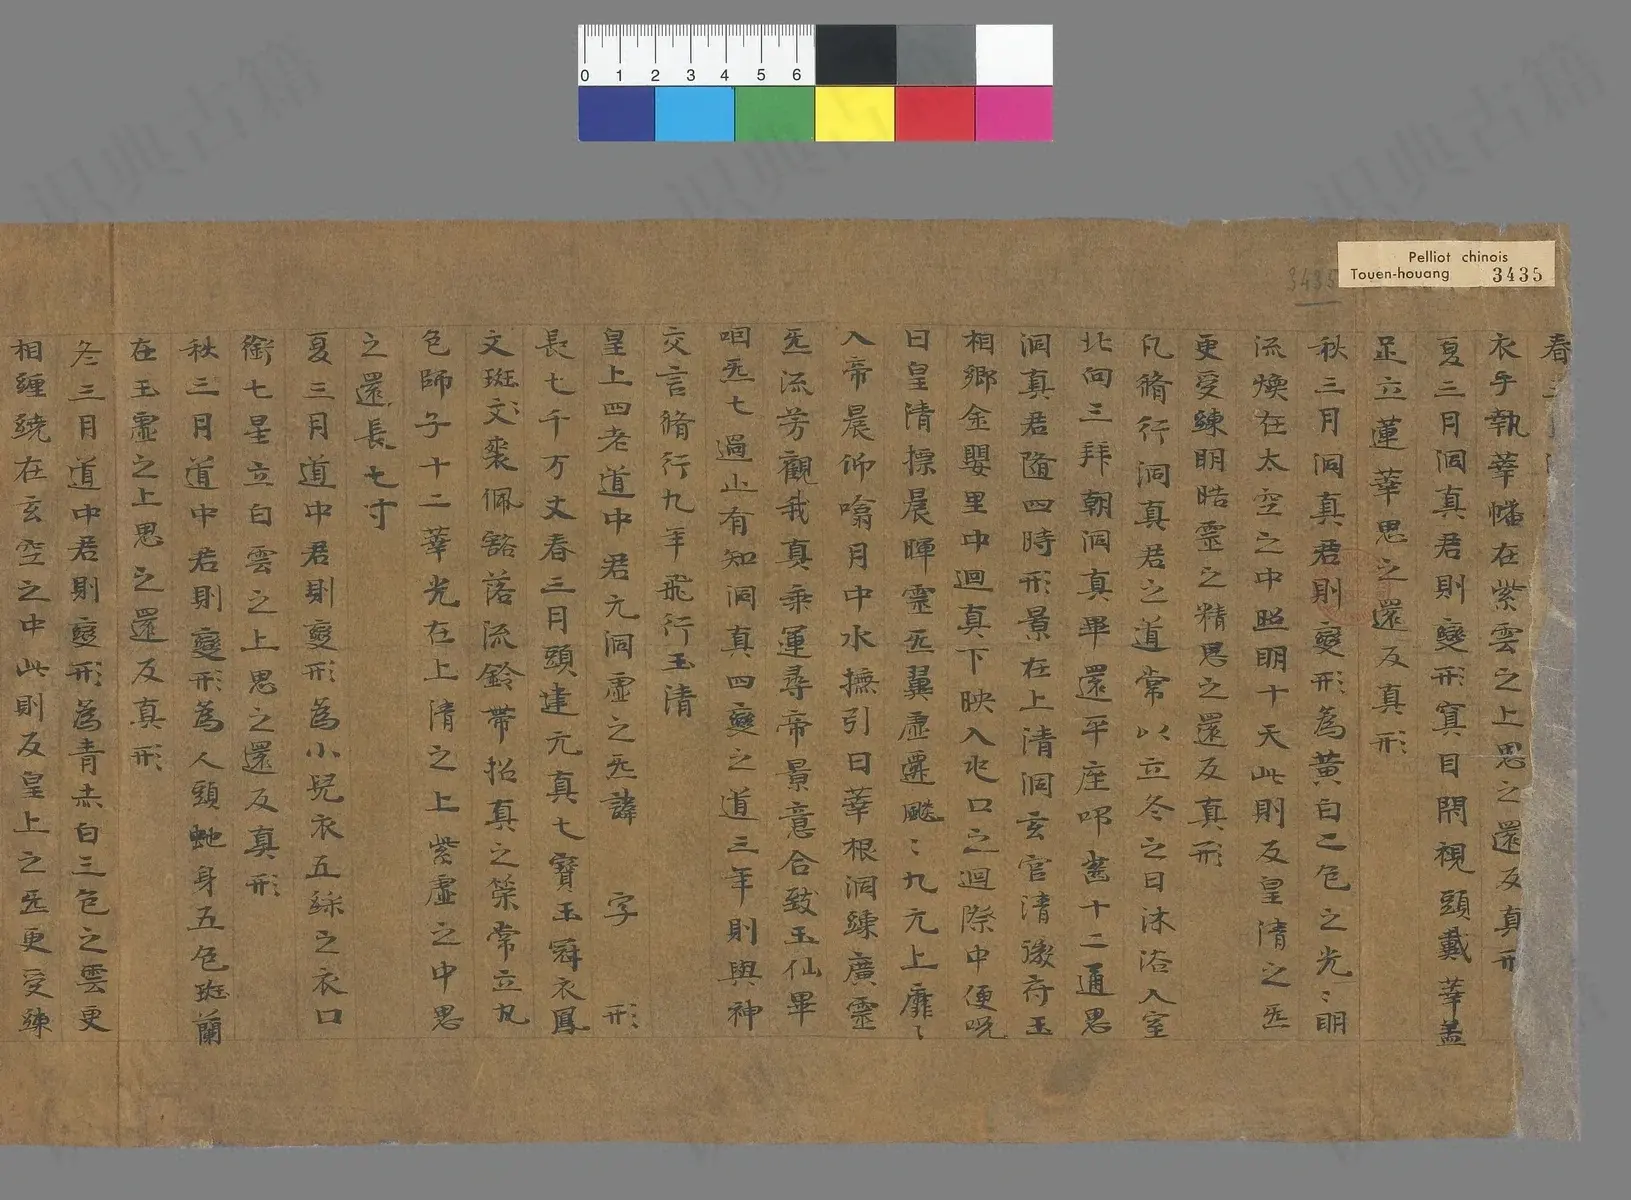 Pelliot chinois
Touen-houang 3435
3435
0 1 2 3 4 5 6
春三
衣手執華幡在紫雲之上思之還反真形
夏三月洞真君則變形窴目閇視頭戴華盖
足立蓮華思之還反真形
秋三月洞真君則變形為黄白二色之光〻明
流煥在太空之中照明十天此則反皇清之炁
更受練明晧靈之精思之還反真形
凡脩行洞真君之道常以立冬之日沐浴入室
北向三拜朝洞真畢還平座叩齒十二通思
洞真君隨四時形景在上清洞玄宮清微府玉
相鄉金嬰里中迴真下映入兆口之迴際中便呪
曰皇清摽晨暉靈炁翼虛遷飈〻九元上靡〻
入帝晨仰噏月中水撫引日華根洞練廣靈
炁流芳觀我真乘運尋帝景意合致玉仙畢
咽炁七過止有知洞真四變之道三年則與神
交言脩行九年飛行玉清
皇上四老道中君元洞虛之炁諱 字 形
長七千万丈春三月頭建元真七寶玉冠衣鳳
文斑文裘佩豁落流鈴帶招真之策常立九
色師子十二華光在上清之上紫虛之中思
之還長七寸
夏三月道中君則變形為小兒衣五綵之衣口
銜七星立白雲之上思之還反真形
秋三月道中君則變形為人頭虵身五色斑蘭
在玉虛之上思之還反真形
冬三月道中君則變形為青赤白三色之雲更
相纏繞在玄空之中此則反皇上之炁更受練
识典古籍